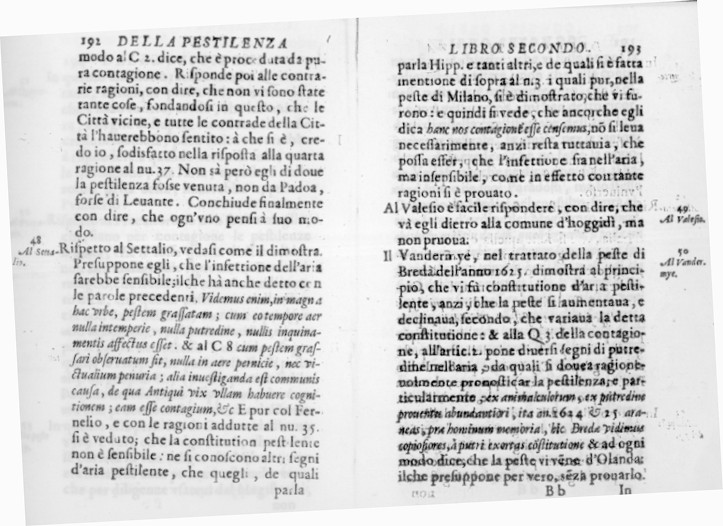 192 DELLA PESTILENZA
modo al C 2. dice, che è proceduta da pu-
ra contagione. Risponde poi alle contra-
rie ragioni, con dire, che non vi sono state
tante cose, fondandosi in questo, che le
Città vicine, e tutte le contrade della Cit-
tà l'hauerebbono sentito: à che si è, cre-
do io, sodisfatto nella risposta alla quarta
ragione al nu.37. Non sà però egli di doue
la pestilenza fosse venuta, non da Padoa,
forse di Leuante. Conchiude finalmente
con dire, che ogn'vno pensi à suo mo-
do.
48
Al Seta-
lio.
Rispetto al Settalio, vedasi come il dimostra.
Presuppone egli, che l'infettione dell'aria
sarebbe sensibile; ilche hà anche detto con
le parole precedenti. Videmus enim, in magna
hac vrbe, pestem grassatam; cum eo tempore aer
nulla intemperie, nulla putredine, nullis inquina-
mentis affectus esset. & al C 8 cum pestem gras-
sari obseruatum sit, nulla in aere pernicie, nec vi-
ctualium penuria; alia inuestiganda est communis
causa, de qua Antiqui vix vllam habuere cogni-
tionem; eam esse contagium, &c E pur col Fer-
nelio, e con le ragioni addutte al nu. 35.
si è veduto; che la constitution pestilente
non è sensibile: ne si conoscono altri segni
d'aria pestilente, che quegli, de quali
parla
LIBRO SECONDO. 193
parla Hipp. e tanti altri, e de quali si è fatta
mentione di sopra al n.3. i quali pur, nella
peste di Milano, si è dimostrato, che vi fu-
rono: e quindi si vede, che ancorche egli
dica hanc nos contagionẽ esse censemus, nõ si leua
necessariamente, anzi resta tuttauia, che
possa esser, che l'infettione sia nell'aria,
ma insensibile, come in effetto con tante
ragioni si è prouato.
Al Valesio è facile rispondere, con dire, che
và egli dietro alla comune d'hoggidì, ma
non pruoua.
49
Al Valesio.
Il Vandermye, nel trattato della peste di
Breda dell'anno 1625. dimostra al princi-
pio, che vi fù constitutione d'aria pesti-
lente, anzi, che la peste si aumentaua, e
declinaua, secondo, che variaua la detta
constitutione: & alla Q 3. della contagio-
ne, all'artic. 2. pone diuersi segni di putre-
dine nell'aria, da quali si douea ragione-
uolmente pronosticar la pestilenza; e par-
ticularmente, ex animalculorum, ex putredine
prouentu abundantiori, ita an. 1624 & 25 ara-
neas, præ hominum memoria, hic Bredæ vidimus
copiosiores, à putri exortas cõstitutione & ad ogni
modo dice, che la peste vi venne d'Olanda:
ilche presuppone per vero, sẽza prouarlo.
50
Al Vander-
mye.
B b In